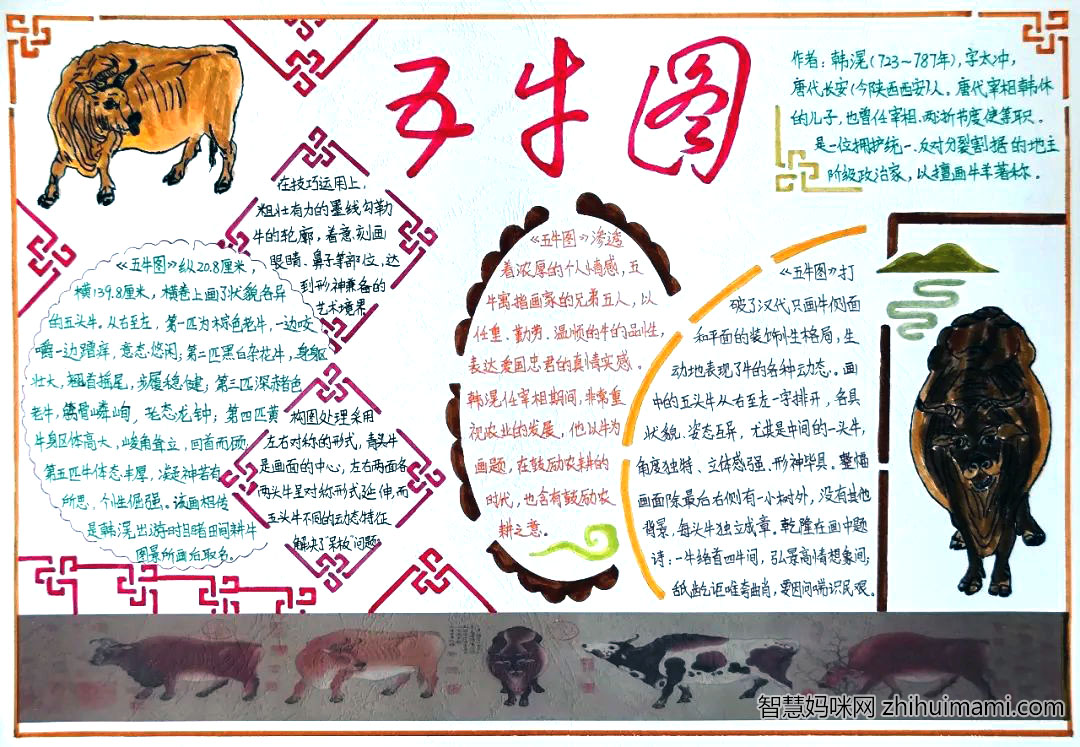 五牛图
作者：韩滉(723～787年)，字太冲，
唐代长安(今陕西西安)人。唐代宰相韩休
的儿子，也曾任宰相、两浙节度使等职。
是一位拥护统一、反对分裂割据的地主
阶级政治家，以擅画牛羊著称。
在技巧运用上，
粗壮有力的墨线勾勒
牛的轮廓，着意刻画
眼睛、鼻子等部位，达
到形神兼备的
艺术境界
《五牛图》纵20.8厘米，
横139.8厘米，横卷上画了状貌各异
的五头牛。从右至左，第一匹为棕色老牛，一边咬
嚼一边蹭痒，意态悠闲；第二匹黑白杂花牛，身躯
壮大，翘首摇尾，步履稳健；第三匹深赭色
老牛，筋骨嶙峋，老态龙钟；第四匹黄
牛身区体高大，峻角耸立，回首而顾；
第五匹牛体态丰厚，凝神若有
所思，个性倔强。该画相传
是韩滉出游时目睹田间耕牛
图景所画后取名。
构图处理采用
左右对称的形式，青头牛
是画面的中心，左右两面各
两头牛呈对称形式延伸，而
五头牛不同的动态特征
解决了"呆板"问题
《五牛图》渗透
着浓厚的个人情感，五
牛寓指画家的兄弟五人，以
任重、勤劳、温顺的牛的品性，
表达爱国忠君的真情实感。
韩滉任宰相期间，非常重
视农业的发展，他以牛为
画题，在鼓励农耕的
时代，也含有鼓励农
耕之意。
《五牛图》打
破了汉代只画牛侧面
和平面的装饰性格局，生
动地表现了牛的各种动态。画
中的五头牛从右至左一字排开，各具
状貌、姿态互异，尤其是中间的一头牛，
角度独特、立体感强、形神毕具。整幅
画面除最后右侧有一小树外，没有其他
背景，每头牛独立成章。乾隆在画中题
诗：一牛络首四牛间，弘景高情想象间；
舐齕讵唯夸曲肖，要因问喘识民艰。
智慧妈咪网 zhihuimami.com